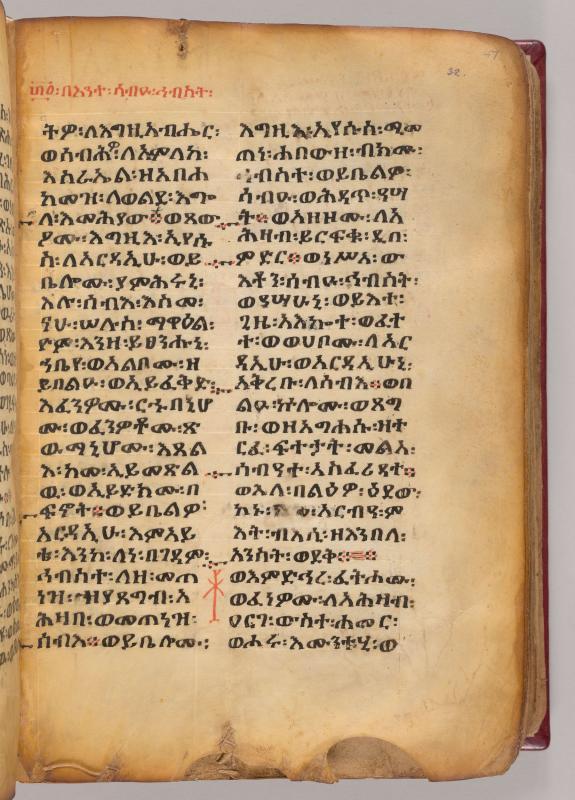 በእንተ፡ሰብዑ፡ኅብስት፡
ትዎ፡ለእግዚአብሔር፡
ወሰብሕዎ፡ለአምላከ፡
እስራኤል፡ዘእበህ
ከመዝ፡ለወልደ፡እጓ
ለ፡እመሕያው።ወጸው
ዖሙ፡እግዚእ፡ኢየሱ
ስ፡ለአርዳኢሁ፡ወይ
ቤሎሙ፡ያምሕሩኒ፡
እሉ፡ሰብእ፡እስመ፡
ናሁ፡ሠሉስ፡ማዋዕል፡
ዮም፡እንዘ፡ይፀንሑኒ፡
ኀቤየ፡ወአልቦሙ፡ዘ
ይበልዑ፡ወኢይፈቅድ፡
እፈንዎሙ፡ርኁበኒሆ
ሙ፡ወፈነዎቶሙ፡ጽ
ዉማኒሆሙ፡እጸል
እ፡ከመ፡ኢይመጽል
ዉ፡ወኢይድክሙ፡በ
ፍኖት።ወይቤልዎ፡
አርዳኢሁ፡እምአይ
ቴ፡እንከ፡ለነ፡በገዳም፡
ኅብስት፡ለዘ፡መጠ
ነዝ፡ዘያጸግብ፡አ
ሕዛበ፡ወመጠነዝ፡
ሰብእ።ወይቤሎሙ፡
እግዚእ፡ኢየሱስ፡ሚመ
ጠነ፡ሐበውዘ፡ብክሙ፡
ኅብስት፡ወይቤልዎ፡
ሰብዑ፡ወሕዳጥ፡ዓሣ
ት።ወአዘዘሙ፡ለአ
ሕዛብ፡ይርፍቁ፡ዲበ፡
ምድር።ወነሥአ፡ው
እቶን፡ሰብዑ፡ኅብስት፡
ወዓሣሁኒ፡ወይእተ፡
ጊዜ፡አእኰተ፡ወፈተ
ተ፡ወወሀቦሙ፡ለአር
ዳኢሁ፡ወአርዳኢሁኒ፡
አቅረቡ፡ለሰብእ።ወበ
ልዑ፡ኵሎሙ፡ወጸግ
ቡ፡ወዘአግሐሱ፡ዘተ
ርፈ፡ፍተታት፡መልአ፡
ሰብዓተ፡አስፈሪዳተ።
ወእለ፡በልዕዎ፡ዕደው፡
አርብዓ፡ም
እት፡ብእሲ፡ዘእንበለ፡
አንስት፡ወደቅ።
ወእምድኅረ፡ፈትሖሙ፡
ወፈነዎሙ፡ለአሕዛብ፡
ዐርገ፡ውስተ፡ሐመር፡
ወሖሩ፡እሙንቱሂ፡ወ
32.